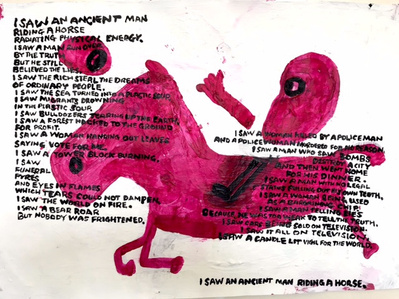 I SAW AN ANCIENT MAN
RIDING A HORSE
RADIATING PHYSICAL ENERGY.
I SAW A MAN RUN OVER
BY THE TRUTH
BUT HE STILL
BELIEVED THE LIES.
I SAW THE RICH STEAL THE DREAMS
OF ORDINARY PEOPLE.
I SAW THE SEA TURNED INTO A PLASTIC SOUP.
I SAW MIGRANTS DROWNING
IN THE PLASTIC SOUP.
I SAW BULLDOZERS TEARING UP THE EARTH,
I SAW A FOREST HACKED TO THE GROUND
FOR PROFIT.
I SAW A WOMEN HANDING OUT
SAYING VOTE FOR ME.
I SAW A TOWER BLOCK BURNING.
I SAW
FUNERAL
PYRES
AND EYES IN FLAMES
WHICH TEARS COULD NOT DAMPEN.
I SAW THE WORLD ON FIRE.
I SAW A BEAR ROAR
BUT NOBODY WAS FRIGHTENED.
I SAW A WOMEN KILLED BY A POLICEMAN
AND A POLICEWOMAN MURDERED FOR NO REASON.
I SAW A MAN WHO SAW BOMBS
DESTROY A CITY
AND THEN WENT HOME
FOR HIS DINNER.
I SAW A MAN WITH NO LEGS
OWN TEETH,
I SAW A WOMAN BEING USED
AS A BARGAINING CHIP.
I SAW A MAN TELLING LIES
BECAUSE HE WAS TOO WEAK TO TELL THE TRUTH.
I SAW CARS BEING SOLD ON TELEVISION.
I SAW IT ALL ON TELEVISION.
I SAW A CANDLE LIT VIGIL FOR THE WORLD.
I SAW AN ANCIENT MAN RIDING A HORSE.